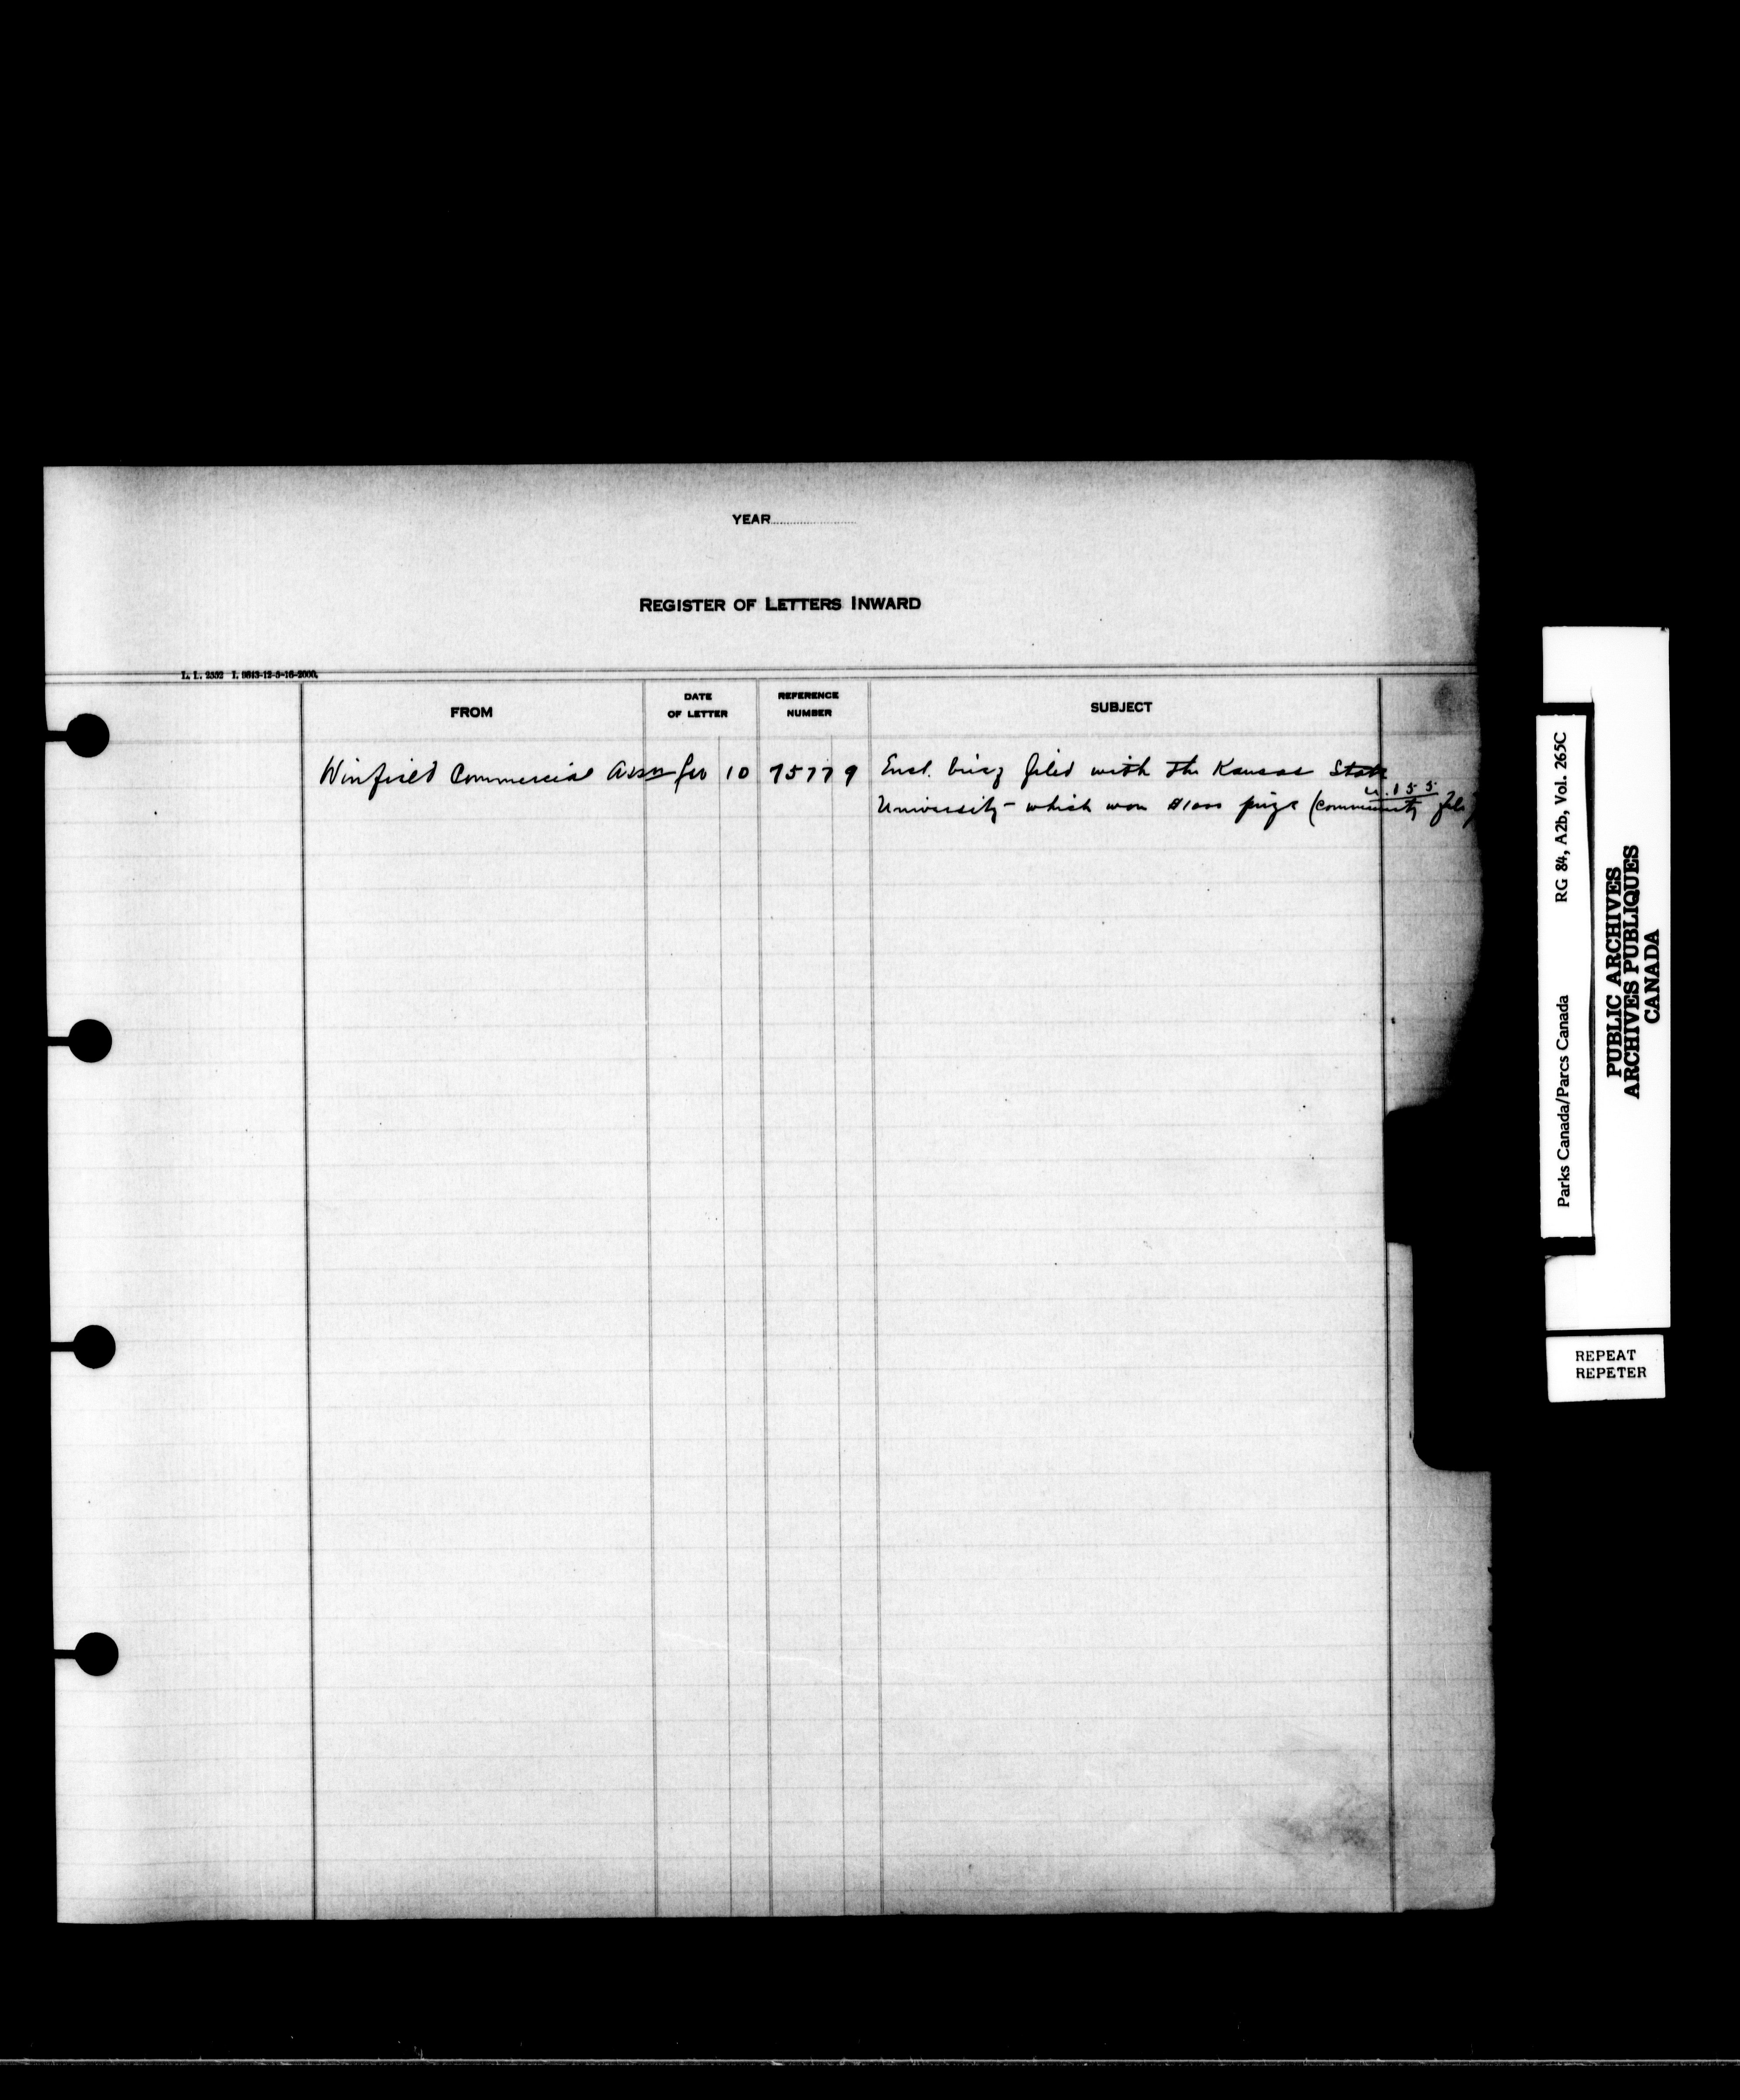 YEAR
REGISTER OF LETTERS INWARD
L. L. 2352 I. 9643-12-5-16-2000.
FROM
DATE
OF LETTER
REFERENCE
NUMBER
SUBJECT
Winfield Commercial Assn Jan 10 75779 Encl. brief filed with the Kansas State
U.155
University - which won $1000 prize (community file)
Parks Canada/Parcs Canada RG 84, A2b, Vol. 265C
PUBLIC ARCHIVES
ARCHIVES PUBLIQUES
CANADA
REPEAT
REPETER